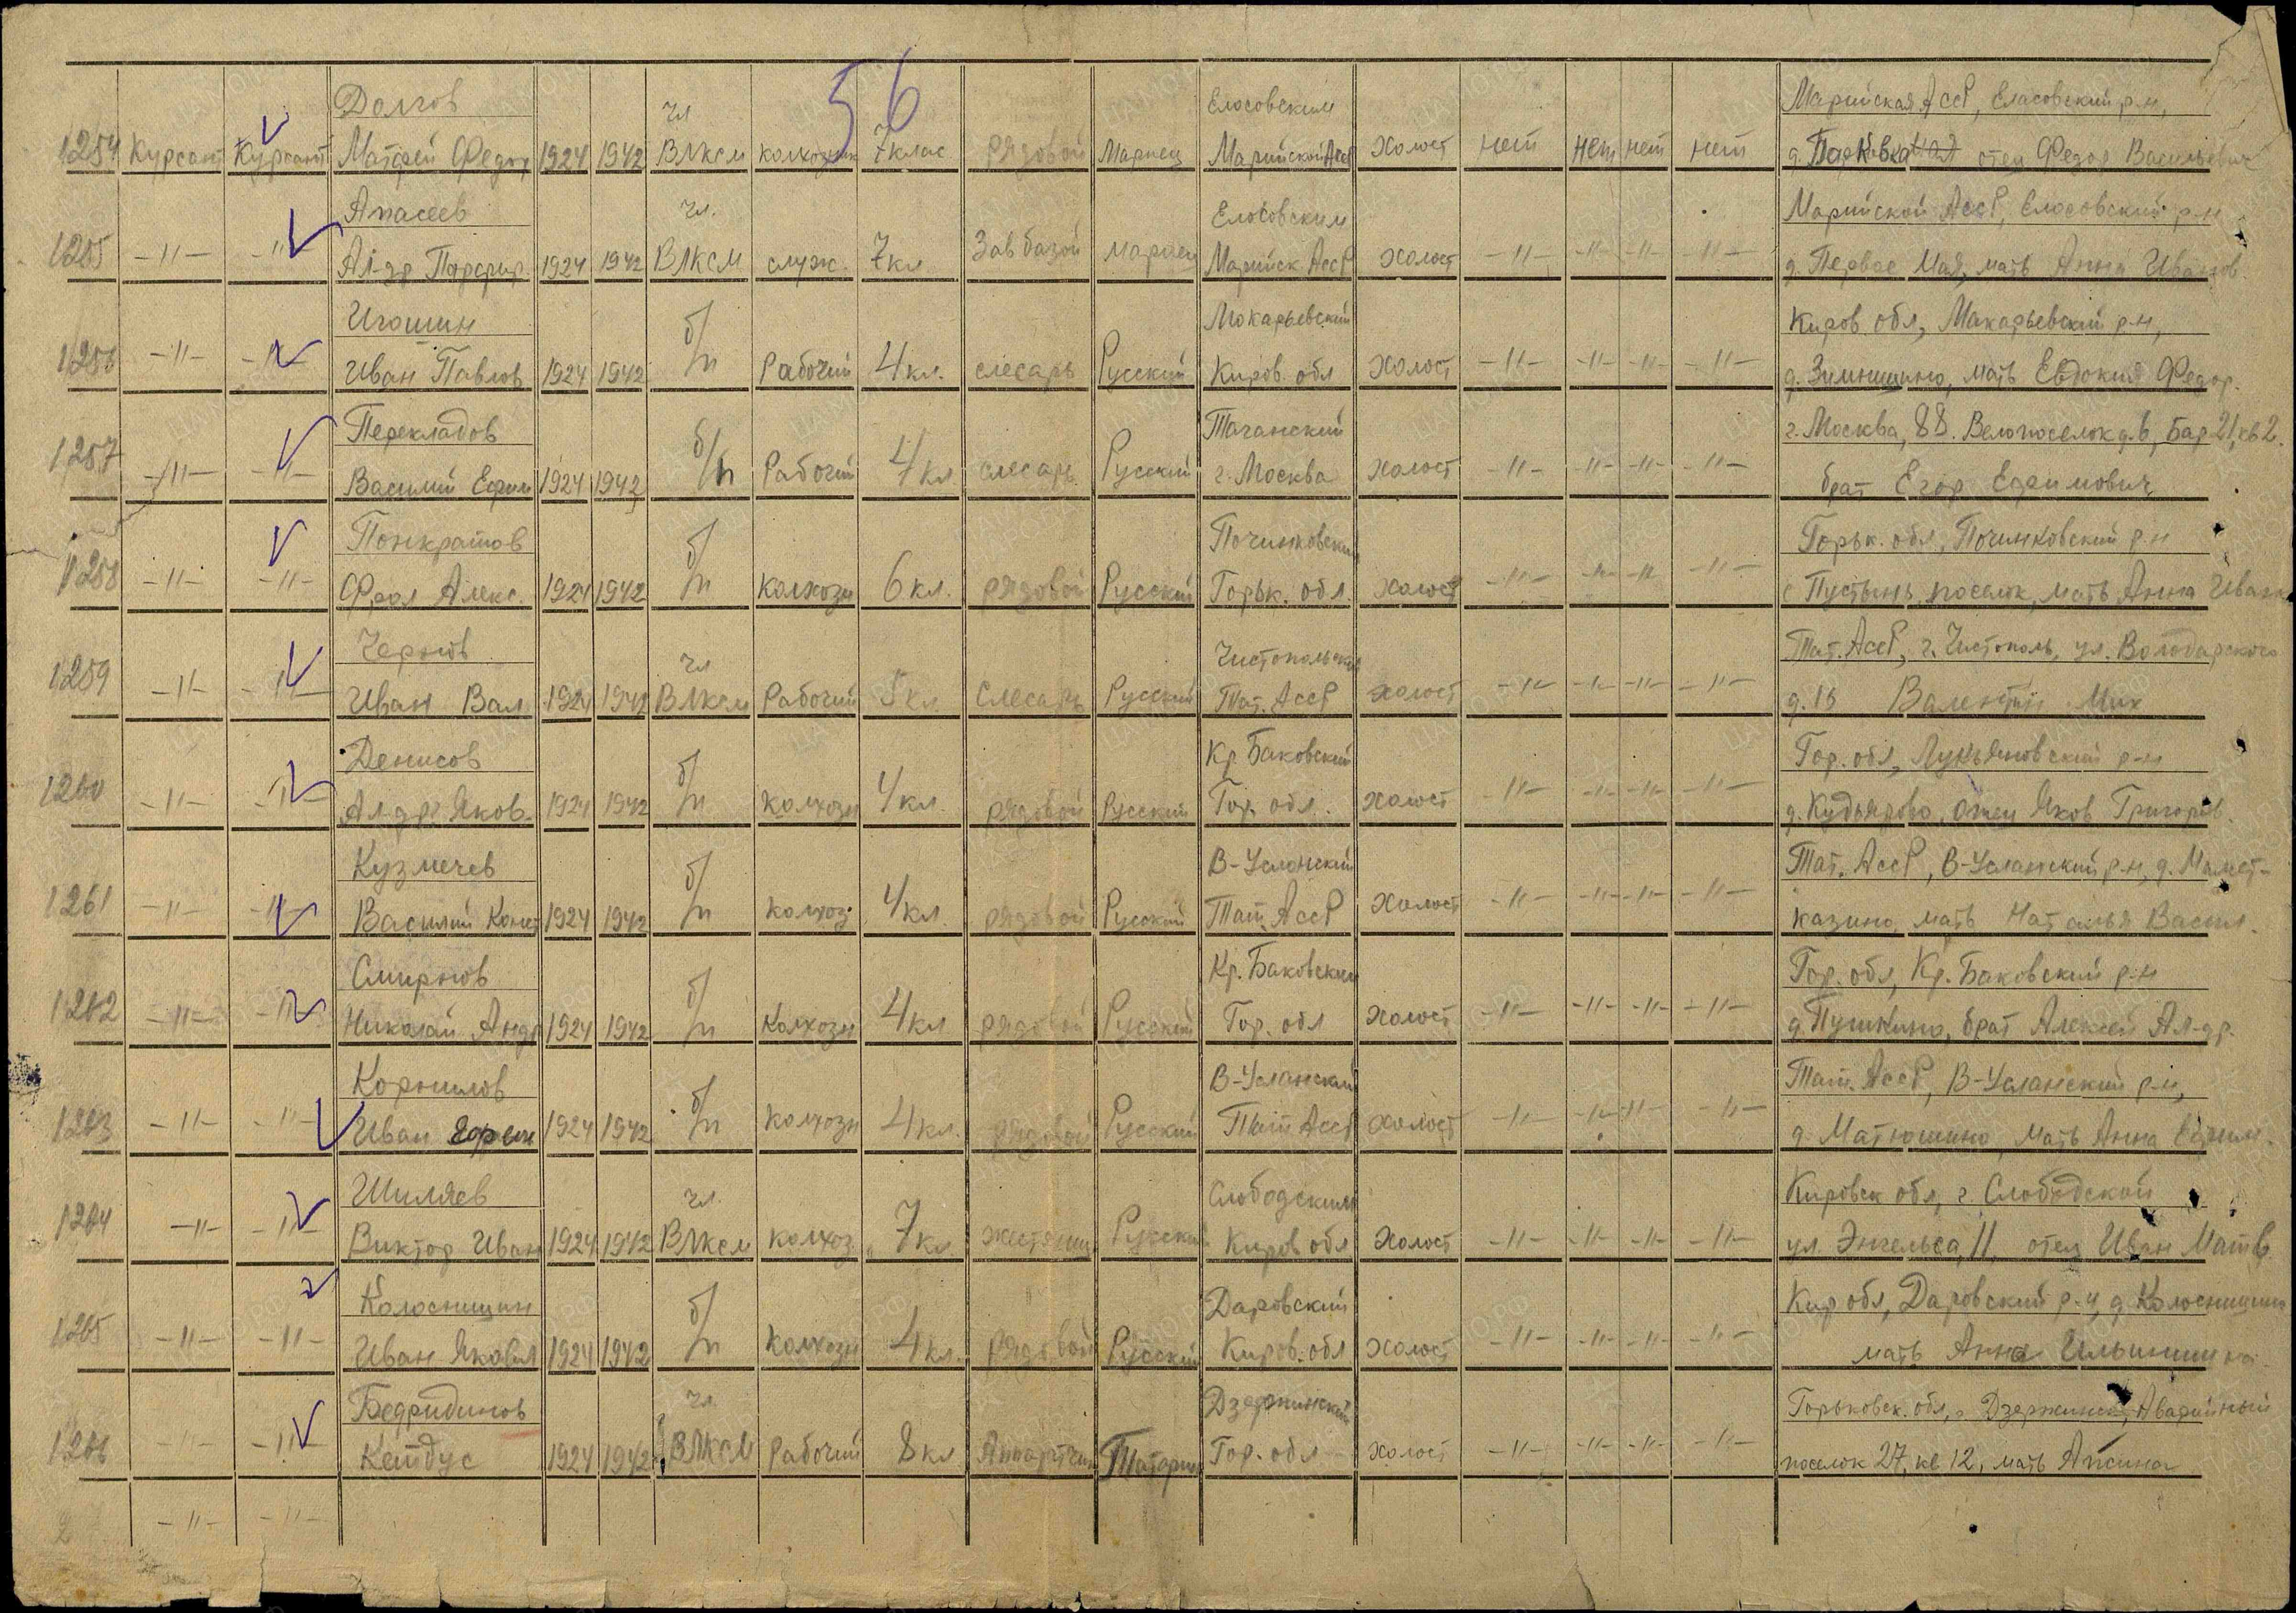 56
Долгов чл Елосовским Марийская АссР, Еласовский р-н,
1254 Курсант Курсант Матфей Федор 1924 1942 ВЛКСМ колхозник 7 клас рядовой Мариец Марийской АссР холост нет нет нет нет д. отец Федор Васильевич
Апасеев чл. Елосовским Марийской АссР, Елосовский р-н
1255 -〃- -〃- Ал-др Парфир. 1924 1942 ВЛКСМ служ. 7 кл Зав базой мариец Марийск. АссР холост -〃- -〃- -〃- -〃- д. Первое Мая, мать Анна Иванов.
Игошин б/п Мокарьевский Киров. обл, Макарьевский р-н,
1256 -〃- -〃- Иван Павлов 1924 1942 Рабочий 4 кл. слесарь Русский Киров. обл холост -〃- -〃- -〃- -〃- д. мать Евдокия Федор.
Перекладов б/п Таганский г. Москва, 88. Велопоселок д. 6, Бар 21, кв 2.
1257 -〃- -〃- Василий Ефим 1924 1942 Рабочий 4 кл слесарь Русский г. Москва холост -〃- -〃- -〃- -〃- брат Егор Ефимович
Понкратов б/п Починковский Горьк. обл, Починковский р-н
1258 -〃- -〃- Фрол Алекс. 1924 1942 колхозн 6 кл. рядовой Русский Горьк. обл. холост -〃- -〃- -〃- -〃- с Пустынь, поселок, мать Анна Иван
Чернов чл Чистопольский Тат. АссР, г. Чистополь, ул. Володарского
1259 -〃- -〃- Иван Вал. 1924 1942 ВЛКСМ Рабочий 5 кл Слесарь Русский Тат. АссР холост -〃- -〃- -〃- -〃- д. Валентин Мих
Денисов б/п Кр Баковский Гор. обл, Лукьяновский р-н
1260 -〃- -〃- Ал-др Яков. 1924 1942 колхозн 4 кл. рядовой Русский Гор. обл. холост -〃- -〃- -〃- -〃- д. Кудьярово, отец Яков Григорьев.
Кузмечев б/п В-Услонский Тат. АссР, В-Усланский р-н, д. Мамет-
1261 -〃- -〃- Василий Конст 1924 1942 колхоз. 4 кл рядовой Русский Тат. АссР холост -〃- -〃- -〃- -〃- казино, мать Наталья Васил.
Смирнов б/п Кр. Баковским Гор. обл, Кр. Баковский р-н
1262 -〃- -〃- Николай Андр 1924 1942 Колхозн 4 кл рядовой Русский Гор. обл холост -〃- -〃- -〃- -〃- д. Пушкино, брат Алексей Ал-др.
Корнилов б/п В-Усланский Тат. АссР, В-Усланский р-н,
1263 -〃- -〃- Иван Ефрем 1924 1942 колхозн 4 кл. рядовой Русский Тат АссР холост -〃- -〃- -〃- -〃- д. Матюшино, мать Анна
Шиляев чл. Слободским Кировск обл, г. Слободской
1264 -〃- -〃- Виктор Иван 1924 1942 ВЛКСМ колхоз. 7 кл. Русский Киров обл холост -〃- -〃- -〃- -〃- ул. Энгельса, 11, отец Иван Матв.
Колосницин б/п Даровский Кир обл, Даровский р-н, д. Колосницини
1265 -〃- -〃- Иван Яковл 1924 1942 колхозн 4 кл. рядовой Русский Киров. обл холост -〃- -〃- -〃- -〃- мать Анна Ильинишна.
Бедридинов чл. Дзержинский Горьковск. обл, г. Дзержинск, Аварийный
1266 -〃- -〃- Кетдус 1924 1942 ВЛКСМ Рабочий 8 кл Аппаратчик Татарин Гор. обл холост -〃- -〃- -〃- -〃- поселок 27, кв 12, мать
-〃- -〃-